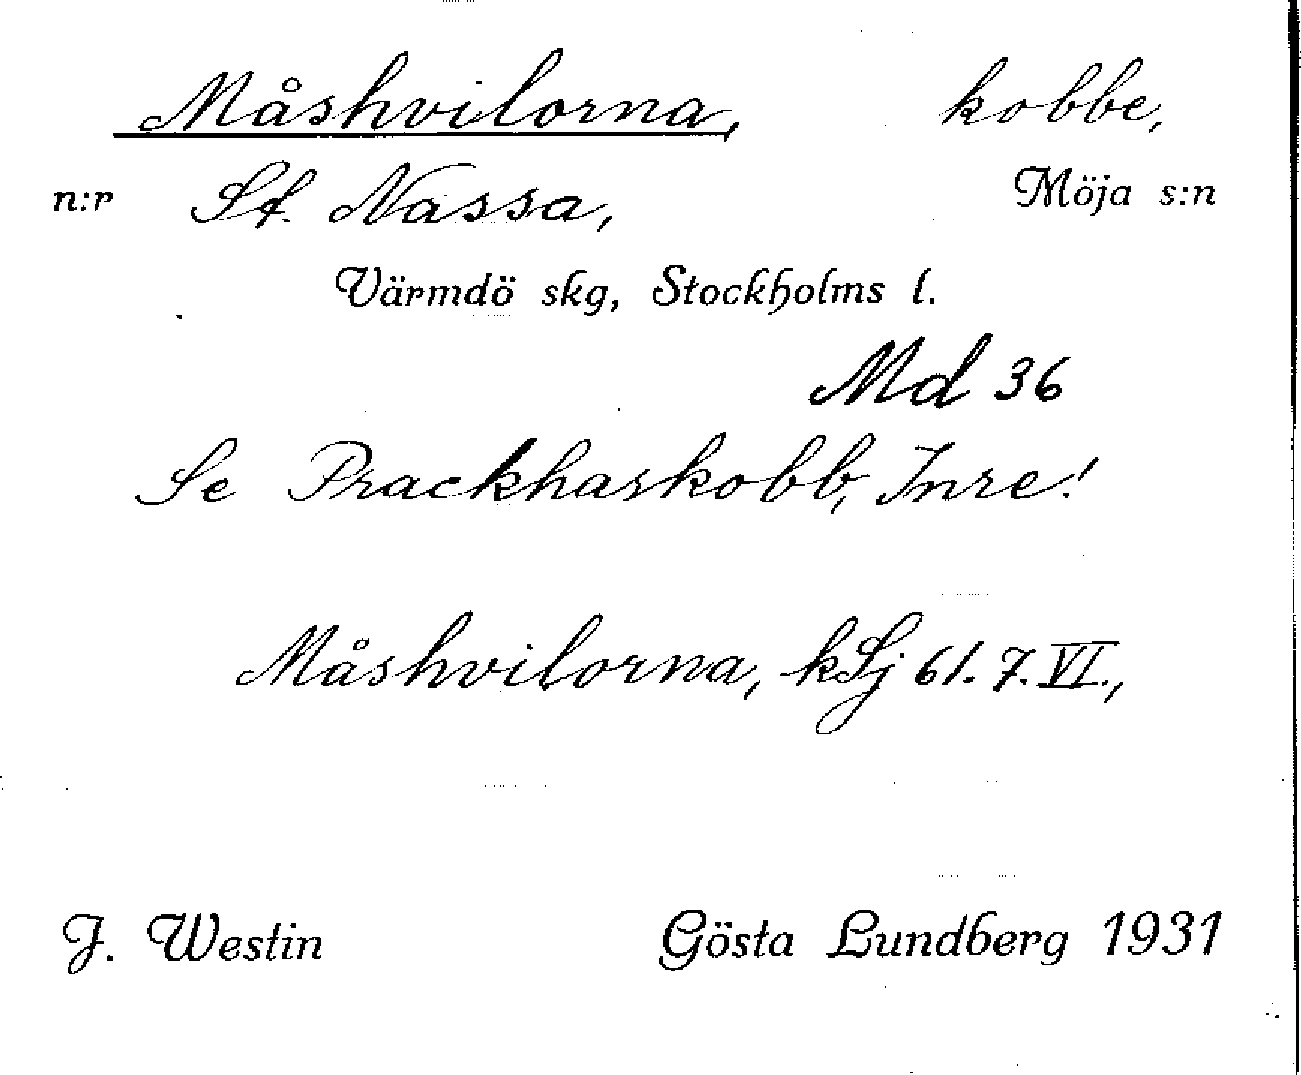 Måshvilorna, kobbe,
n:r St. Nassa, Möja s:n
Värmdö skg, Stockholms l.
Md 36
Se Prackharskobb, Inre!
Måshvilorna, kSj 61. 7. VI.,
J. Westin Gösta Lundberg 1931